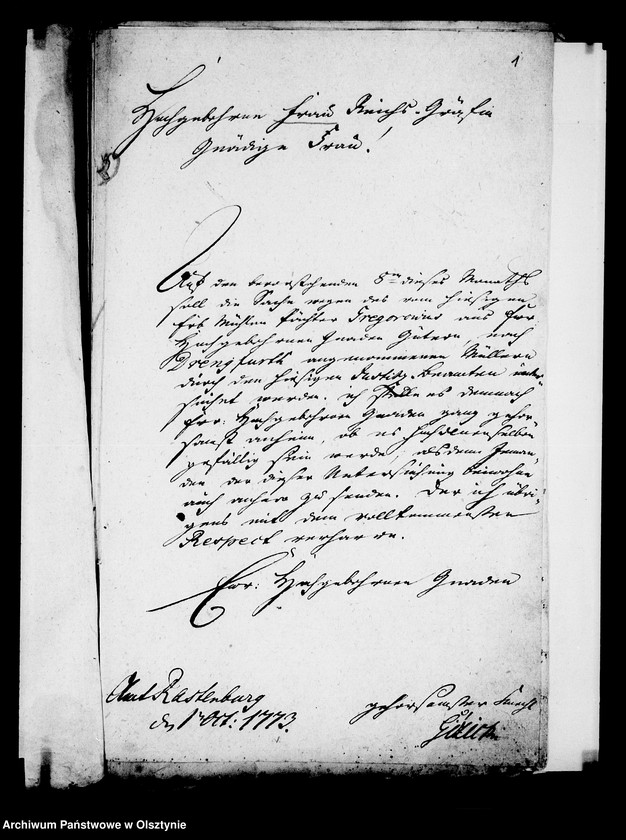 1
Hochgebohrne Frau Reichs-Gräfin
Gnädige Frau!
Auf den bevorstehenden 8ten dieses Monaths
soll die Sache wegen des vom hiesigen
Erb Mühlen Pächter Gregorovius aus Ewr.
Hochgebohrnen Gnaden Gütern, nach
Drengfurth angenommenen Müllern
durch den hiesigen Justitz-Beamten unter-
suchet werden. Ich stelle es demnach
Ewr: Hochgebohrnen Gnaden gantz gehor-
samst anheim, ob es Hochdenenselben
gefällig seyn werde, alsdenn Jeman-
den der dieser Untersuchung beiwohne
auch anhero zu senden. Der ich übri-
gens mit dem vollkommensten
Respect verharre.
Ewr: Hochgebohrnen Gnaden
Amt Rastenburg
den 1t Oct: 1773.
gehorsamster Knecht
Archiwum Państwowe w Olsztynie